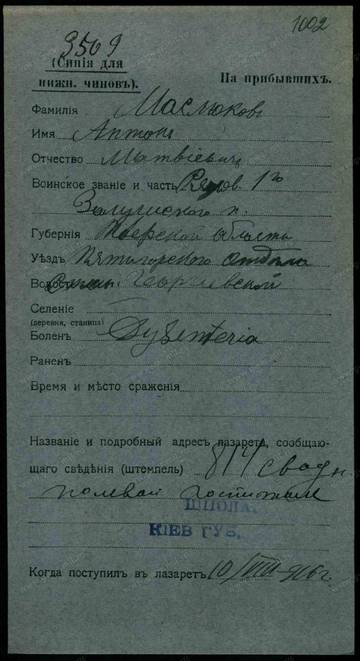 1002
3569
(Синія для
нижн. чиновъ).
На прибывшихъ.
Фамилія Маслюковъ
Имя Антонъ
Отчество Матвіевичъ
Воинское званіе и часть Рядов. 1го
п.
Губернія Терской области
Уѣздъ Пятигорского отдѣла
Волость Георгіевской
Селеніе
(деревня, станица)
Боленъ Dysenteria
Раненъ
Время и мѣсто сраженія
Названіе и подробный адресъ лазарета, сообщаю-
щаго свѣдѣнія (штемпель) сводн.
полевой госпиталь
ШПОЛА
КІЕВ ГУБ.
Когда поступилъ въ лазаретъ 10/VIII-916 г.